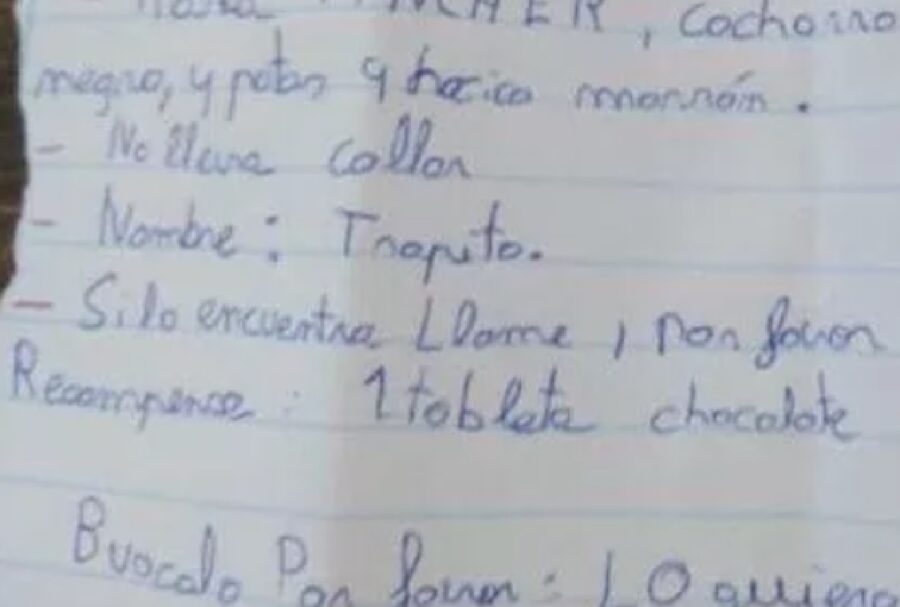 Raza PINCHER, Cachorro
negro, y patas y hocico marrón.
- No lleva collar
- Nombre: Trapito.
- Si lo encuentra LLame, por favor
Recompensa: 1 tableta chocolate
Buscalo Por favor: LO quiero